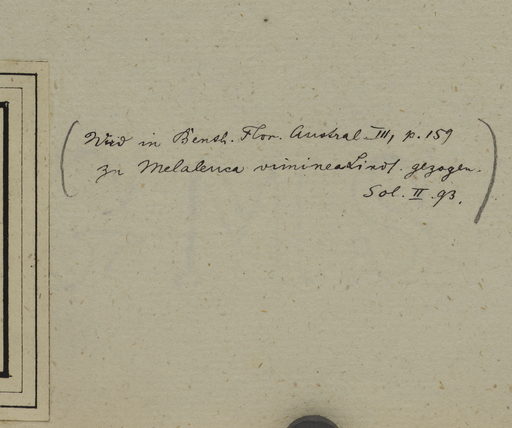 (Wird in Benth. Flor. Austral. III, p. 159
zu Melaleuca viminea Lindl. gezogen.
Sol. II. 93.)